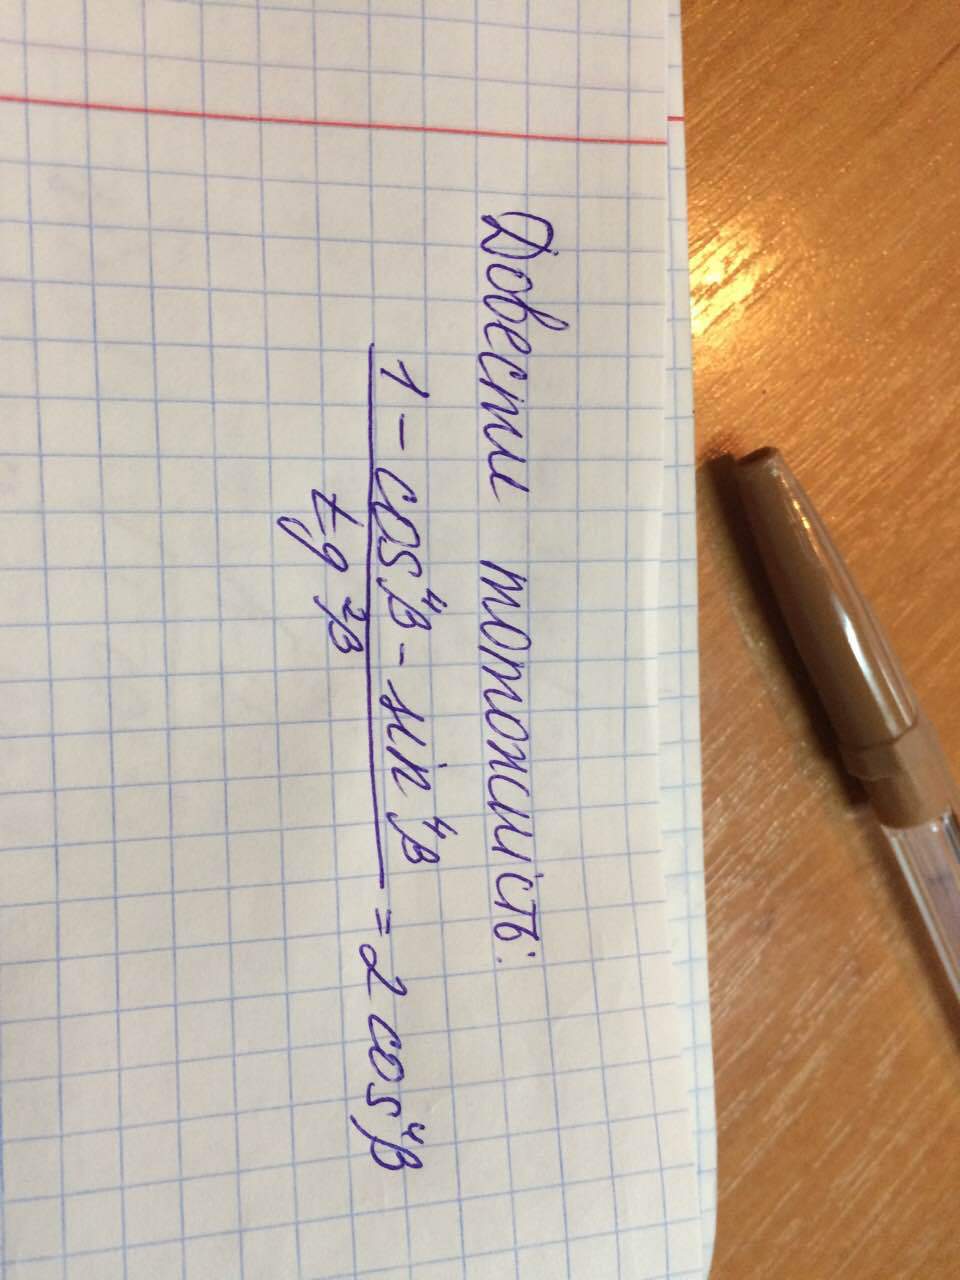 Довести тотожність:
1 - cos⁴β - sin⁴β
tg²β
= 2 cos⁴β